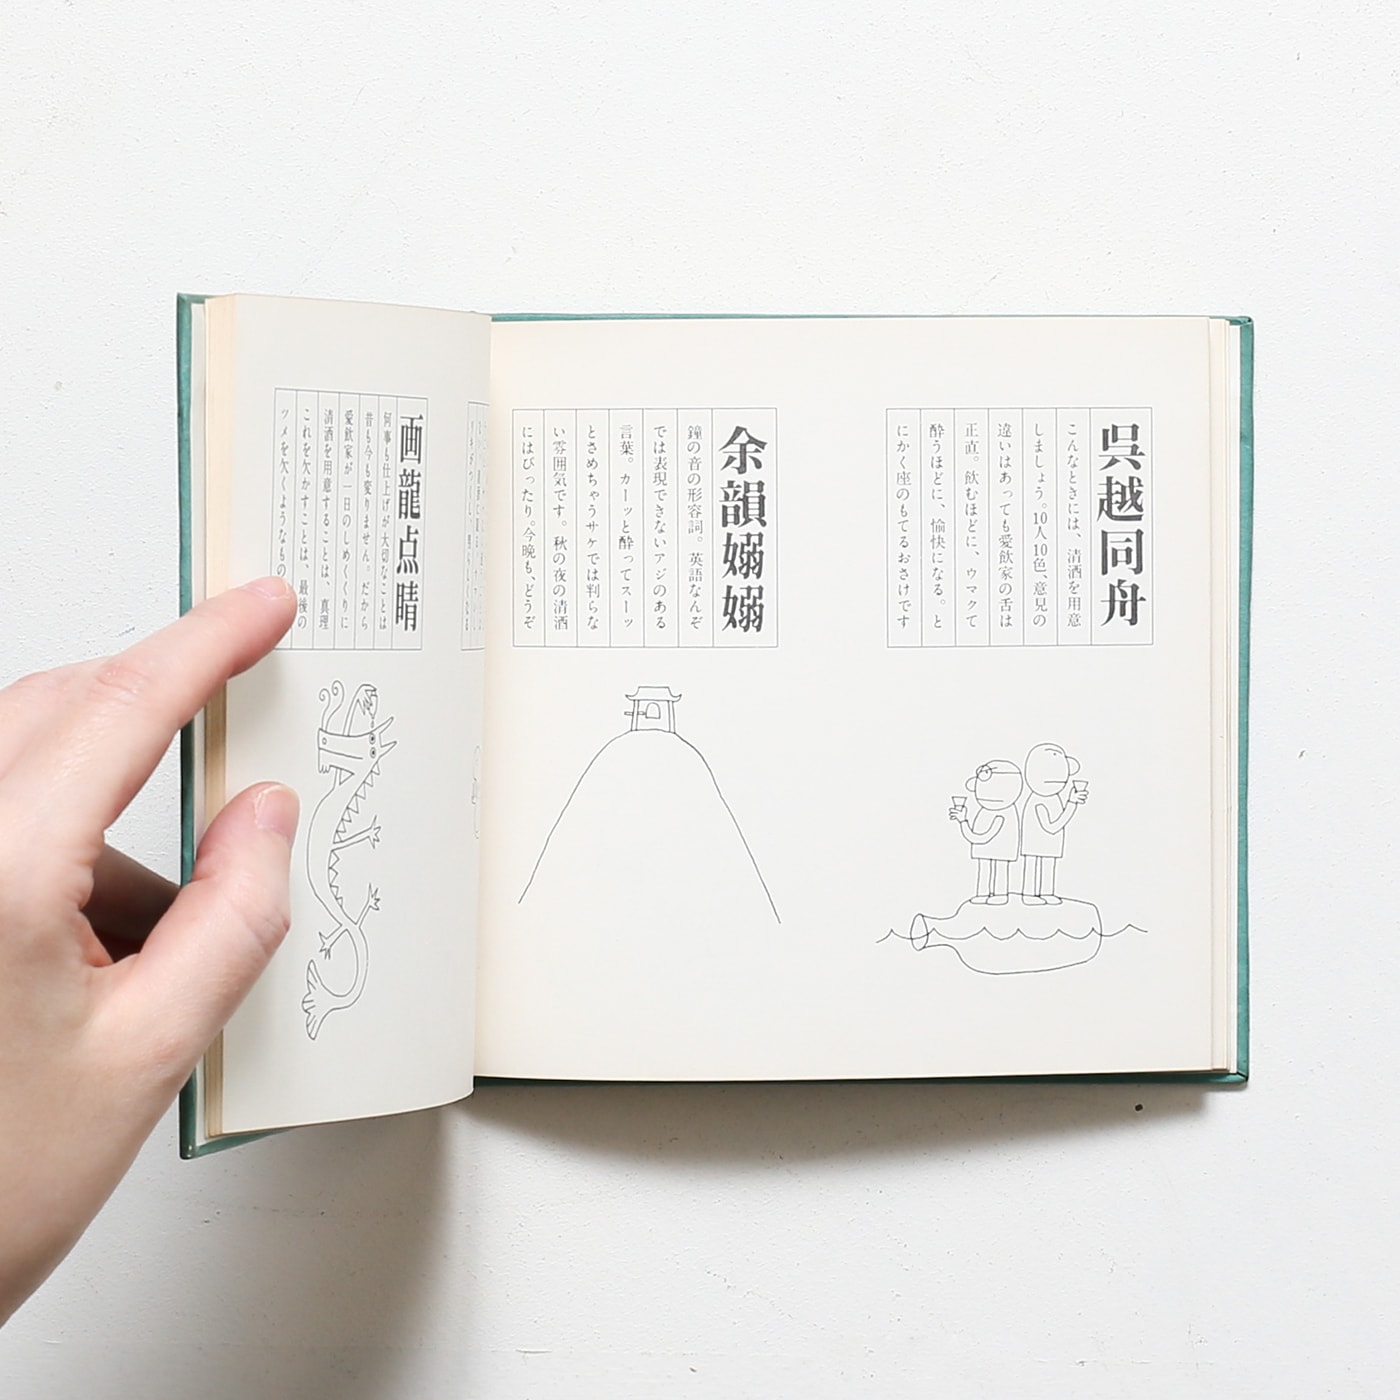 呉越同舟
こんなときには、清酒を用意
しましょう。10人10色、意見の
違いはあっても愛飲家の舌は
正直。飲むほどに、ウマクて
酔うほどに、愉快になる。と
にかく座のもてるおさけです
余韻嫋嫋
鐘の音の形容詞。英語なんぞ
では表現できないアジのある
言葉。カーッと酔ってスーッ
とさめちゃうサケでは判らな
い雰囲気です。秋の夜の清酒
にはぴったり。今晩も、どうぞ
画龍点睛
何事も仕上げが大切なことは
昔も今も変りません。だから
愛飲家が一日のしめくくりに
清酒を用意することは、真理
これを欠かすことは、最後の
ツメを欠くようなもの